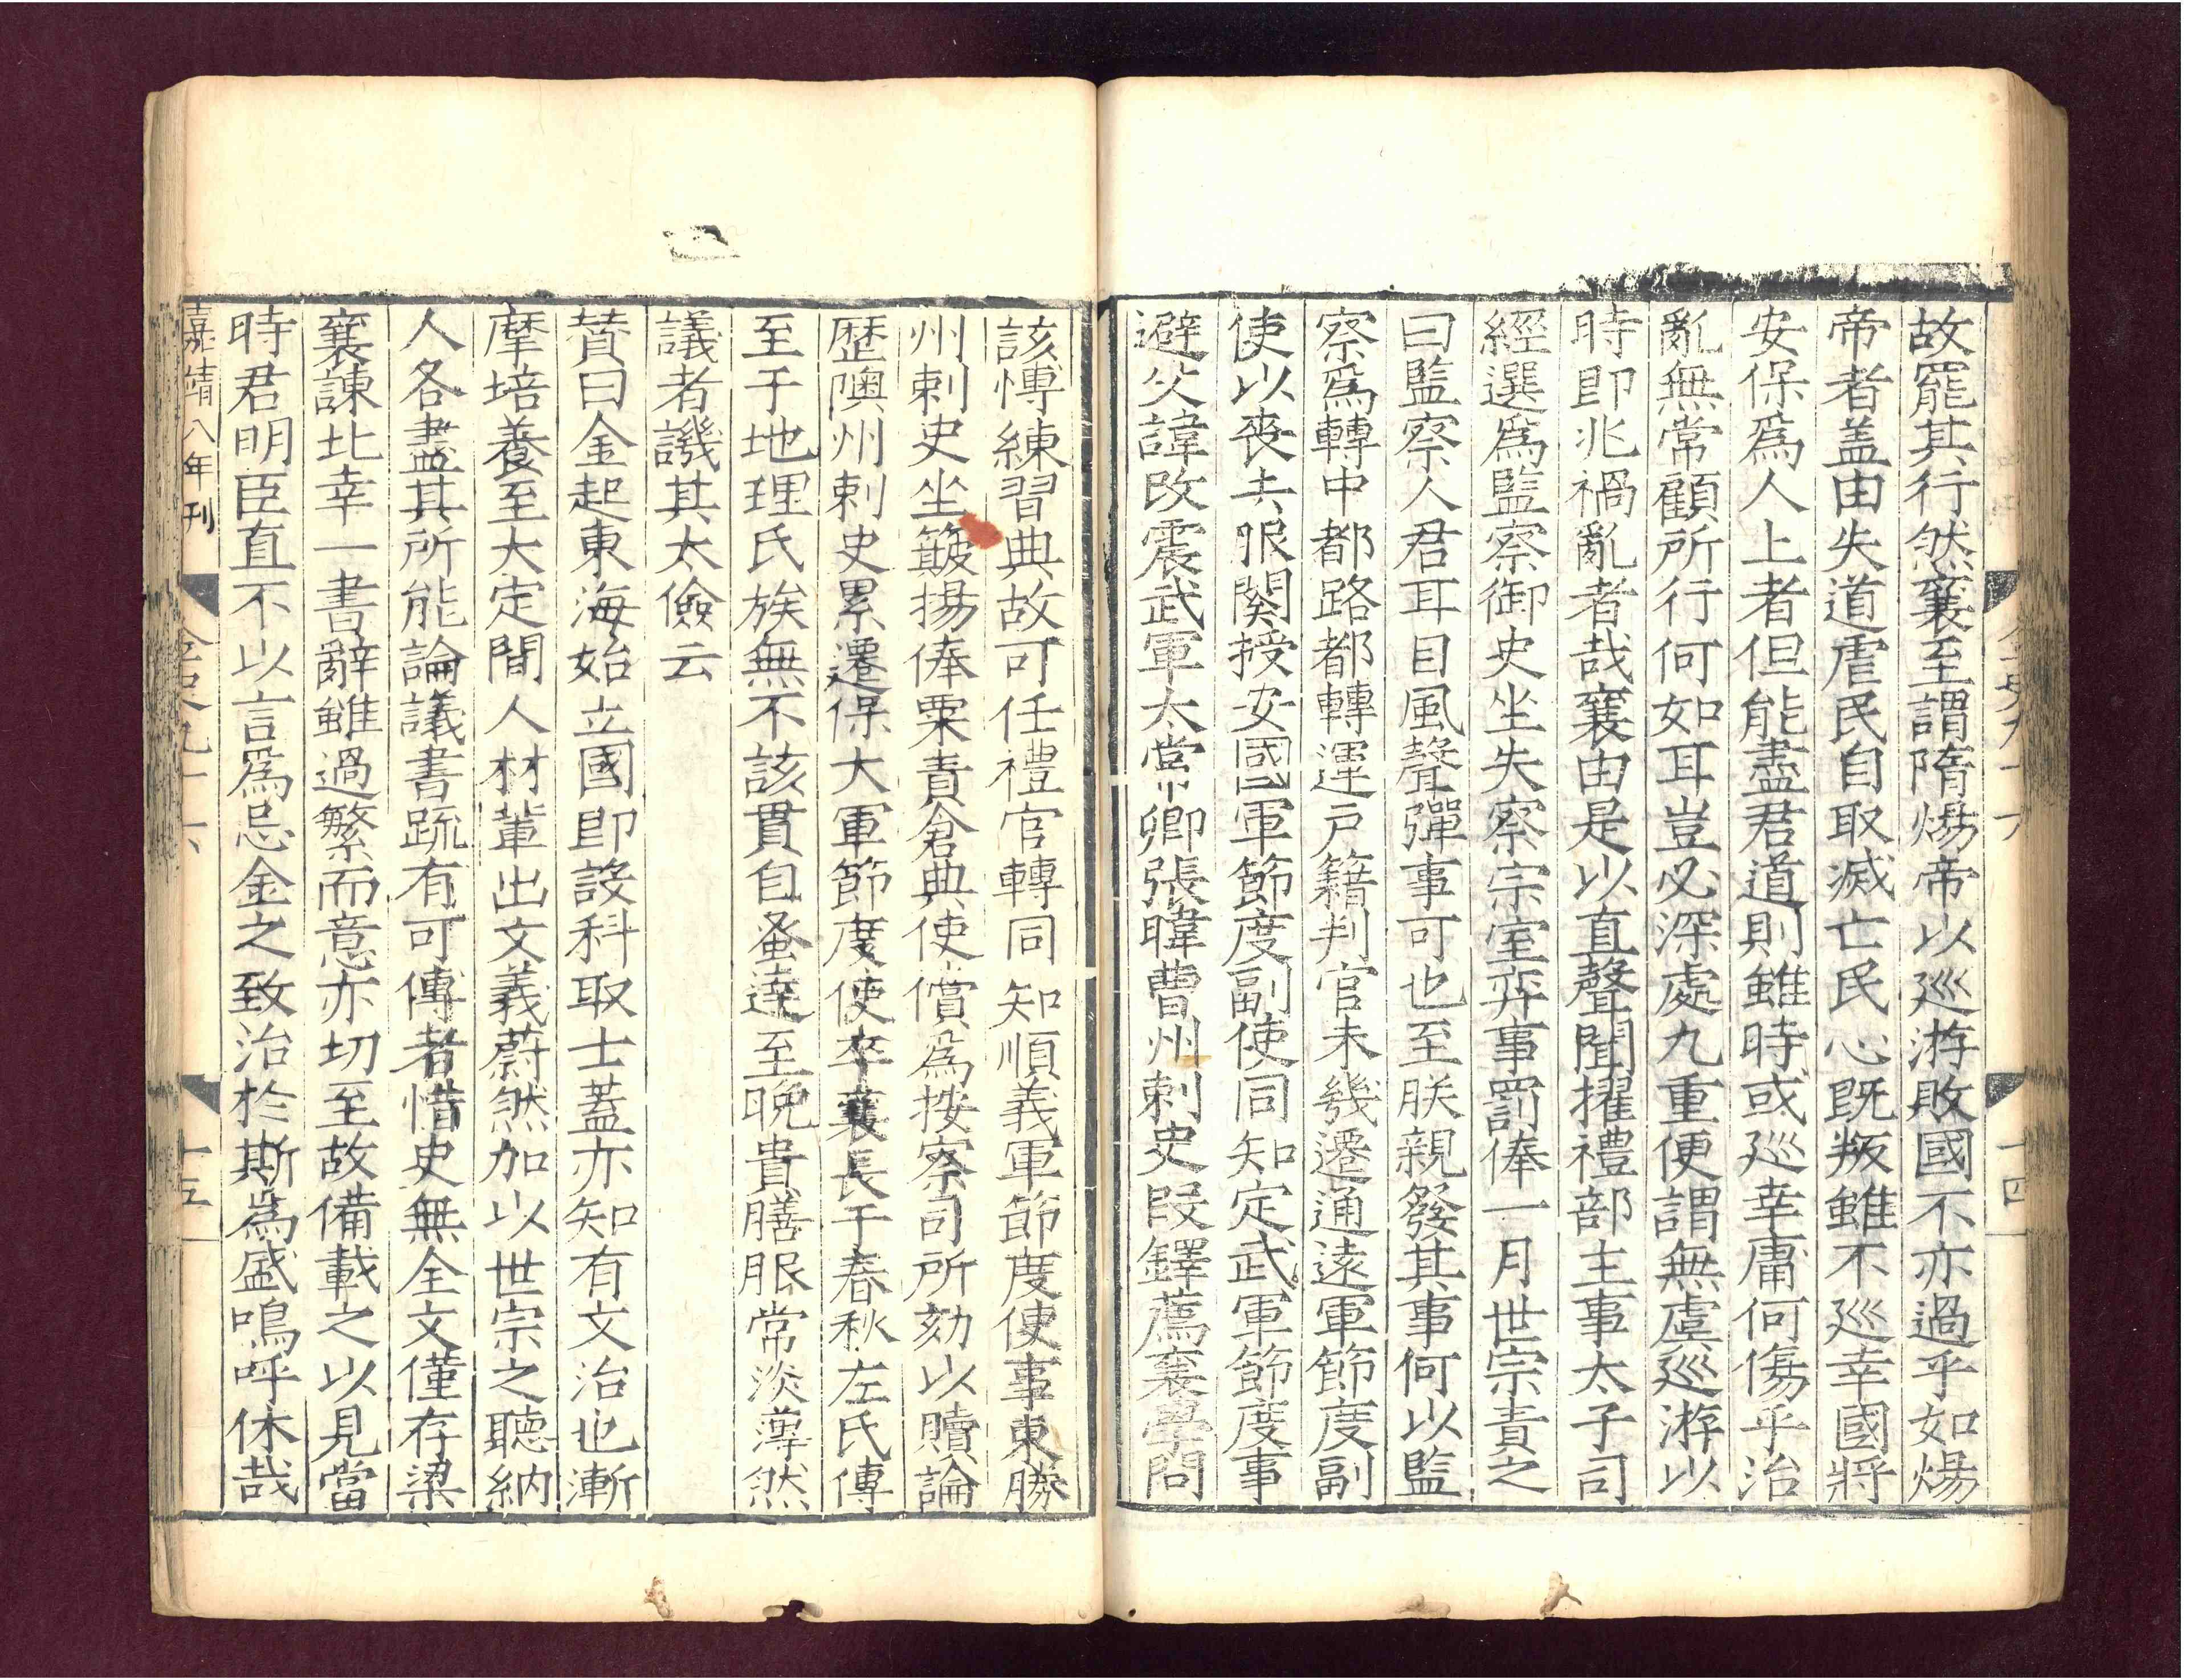 故罷其行然襄至謂隋煬帝以廵游敗國不亦過乎如煬
帝者盖由失道虐民自取滅亡民心既叛雖不廵幸國將
安保爲人上者但能盡君道則雖時或廵幸庸何傷乎治
亂無常顧所行何如耳豈必深處九重便謂無虞廵游以
時卽兆禍亂者哉襄由是以直聲聞擢禮部主事太子司
經選爲監察御史坐失察宗室弈事罰俸一月世宗責之
曰監察人君耳目風聲彈事可也至朕親發其事何以監
察爲轉中都路都轉運戸籍判官未幾遷通遠軍節度副
使以喪去服闋授安國軍節度副使同知定武軍節度事
避父諱改震武軍太常卿張暐曹州刺史段鐸薦襄學問
該愽練習典故可任禮官轉同知順義軍節度使事東勝
州刺史坐簸揚俸粟責倉典使償爲按察司所劾以贖論
歷隩州刺史累遷保大軍節度使卒襄長于春秋左氏傳
至于地理氏族無不該貫自蚤達至晚貴膳服常淡薄然
議者譏其太儉云
贊曰金起東海始立國卽設科取士蓋亦知有文治也漸
摩培養至大定間人材輩出文義蔚然加以世宗之聽納
人各盡其所能論議書疏有可傳者惜史無全文僅存梁
襄諫北幸一書辭雖過繁而意亦切至故備載之以見當
時君明臣直不以言爲忌金之致治於斯爲盛嗚呼休哉
嘉靖八年刊
金史九十六
十五